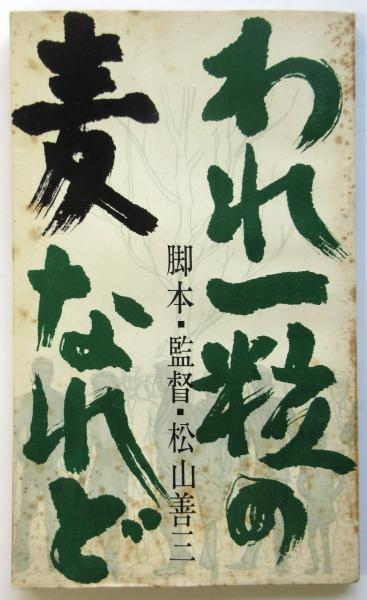 われ一粒の
麦なれど
脚本・監督・松山善三